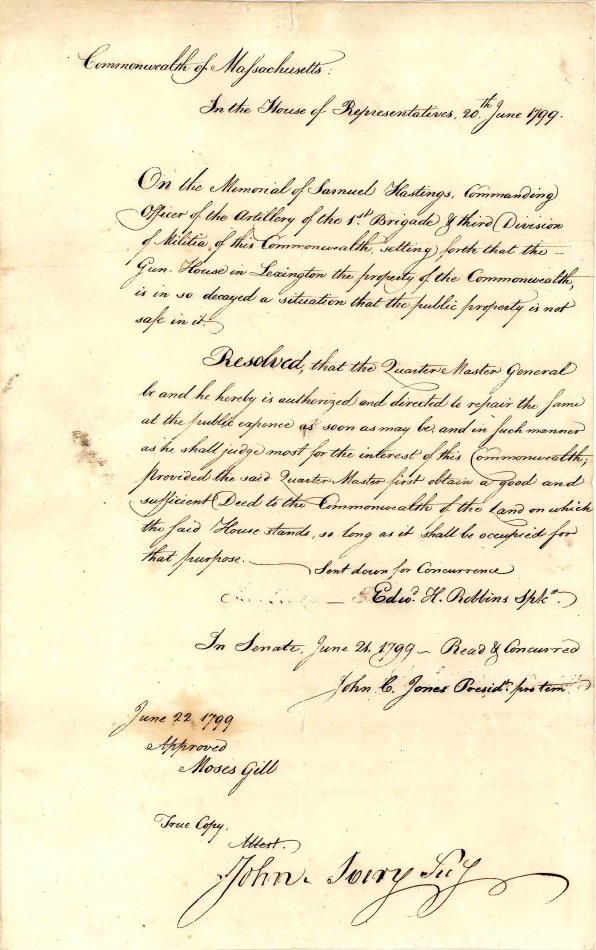 Commonwealth of Massachusetts:
In the House of Representatives, 20.th June 1799.
On the Memorial of Samuel Hastings, Commanding
Officer of the Artillery of the 1.st Brigade & third Division
of Militia, of this Commonwealth, setting forth that the –
Gun-House in Lexington the property of the Commonwealth,
is in so decayed a situation that the public property is not
safe in it.
Resolved, that the Quarter Master General
be and he hereby is authorized and directed to repair the same
at the public expence as soon as may be, and in such manner
as he shall judge most for the interest of this Commonwealth;
provided the said Quarter Master first obtain a good and
sufficient Deed to the Commonwealth of the Land on which
the said House stands, so long as it shall be occupied for
that purpose.
Sent down for Concurrence
Edwd. H. Robbins Spkr.
In Senate, June 21. 1799 – Read & Concurred
John C. Jones Presidt. pro tem
June 22 1799
Approved
Moses Gill
True Copy,
Attest.
John Avery Secy